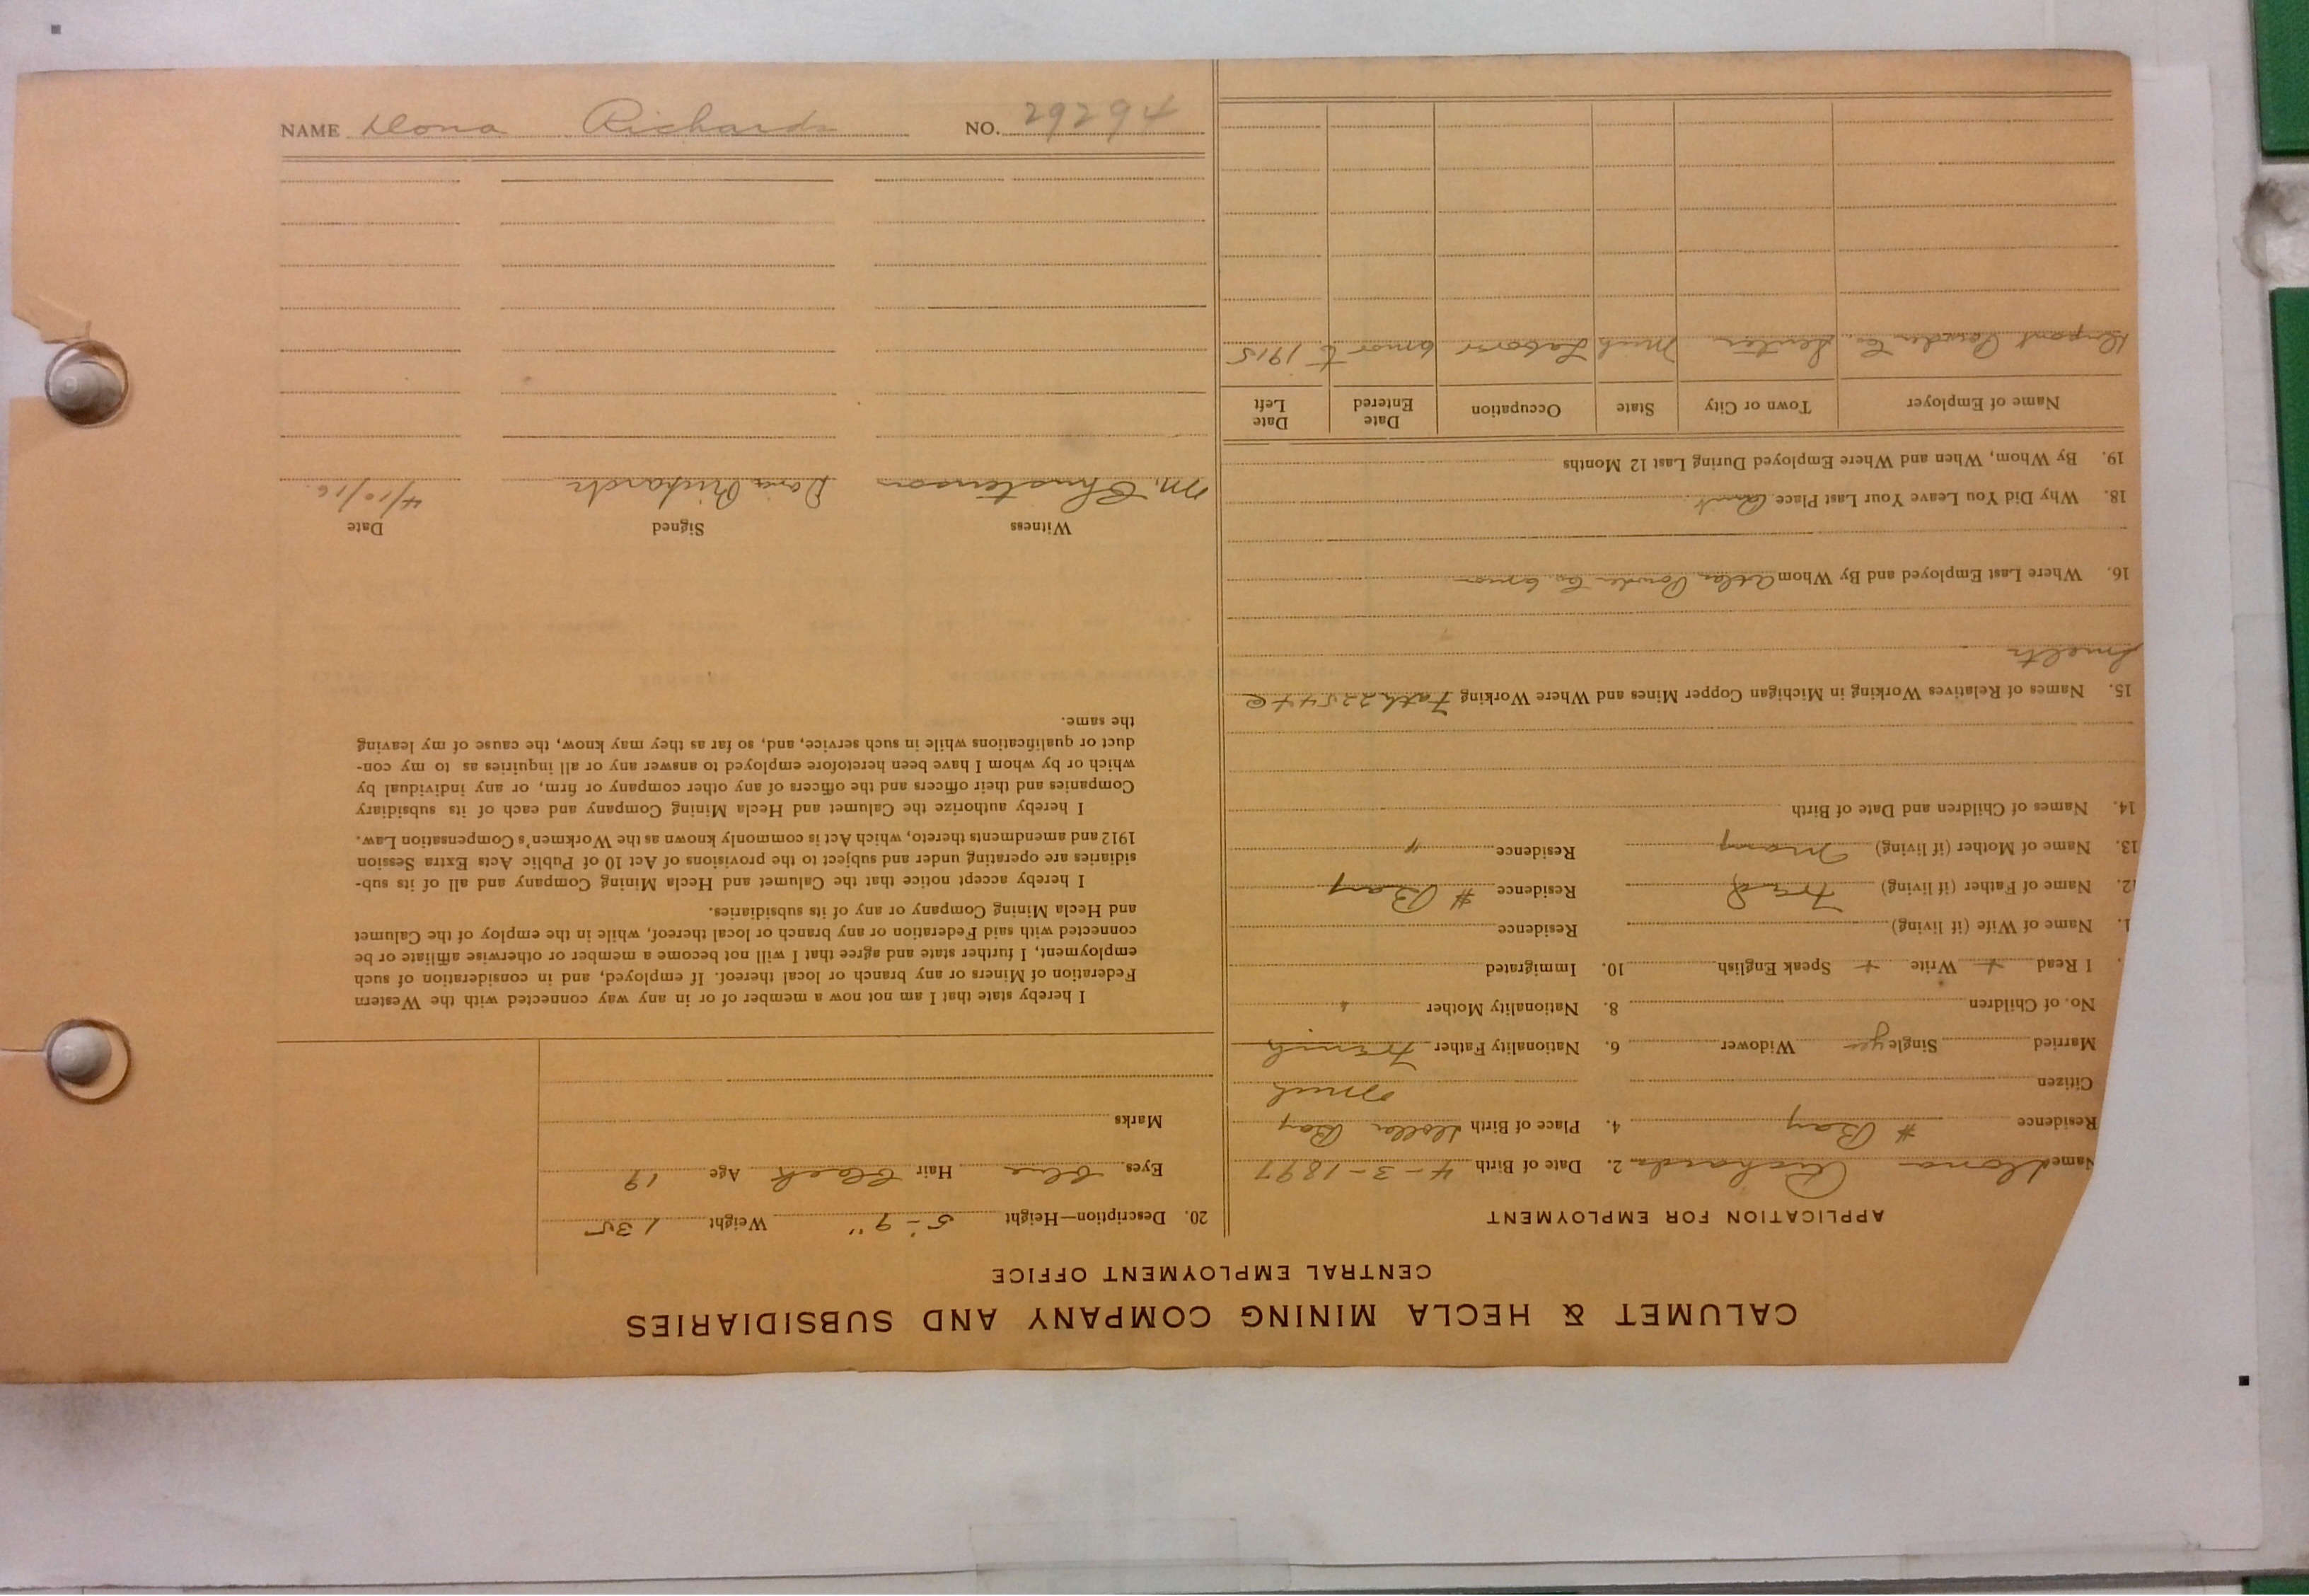 CALUMET & HECLA MINING COMPANY AND SUBSIDIARIES
CENTRAL EMPLOYMENT OFFICE
APPLICATION FOR EMPLOYMENT
Name Dona Richards 2. Date of Birth 4-3-1897
Residence # Bay 4. Place of Birth Dollar Bay
Mich
Citizen
Married Single yes Widower 6. Nationality Father French
No. of Children 8. Nationality Mother "
I Read + Write + Speak English 10. Immigrated
1. Name of Wife (if living) Residence
12. Name of Father (if living) Fred Residence # Bay
13. Name of Mother (if living) Mary Residence "
14. Names of Children and Date of Birth
15. Names of Relatives Working in Michigan Copper Mines and Where Working Fath 22544 @
Smeltr
16. Where Last Employed and By Whom Atlas Powder Co. 6 mos
18. Why Did You Leave Your Last Place
19. By Whom, When and Where Employed During Last 12 Months
Name of Employer Town or City State Occupation Date Entered Date Left
Dupont Powder Co. Senter Mich Laborer 6 mos to 1915
20. Description—Height 5'-9" Weight 135
Eyes blue Hair black Age 19
Marks
I hereby state that I am not now a member of or in any way connected with the Western
Federation of Miners or any branch or local thereof. If employed, and in consideration of such
employment, I further state and agree that I will not become a member or otherwise affiliate or be
connected with said Federation or any branch or local thereof, while in the employ of the Calumet
and Hecla Mining Company or any of its subsidiaries.
I hereby accept notice that the Calumet and Hecla Mining Company and all of its sub-
sidiaries are operating under and subject to the provisions of Act 10 of Public Acts Extra Session
1912 and amendments thereto, which Act is commonly known as the Workmen's Compensation Law.
I hereby authorize the Calumet and Hecla Mining Company and each of its subsidiary
Companies and their officers and the officers of any other company or firm, or any individual by
which or by whom I have been heretofore employed to answer any or all inquiries as to my con-
duct or qualifications while in such service, and, so far as they may know, the cause of my leaving
the same.
Witness Signed Date
M. Christenson Dona Richards 4/10/16.
NAME Dona Richards NO. 29294